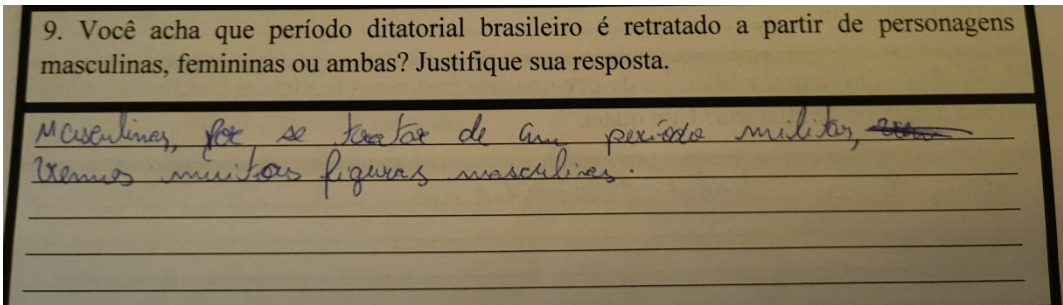 9. Você acha que período ditatorial brasileiro é retratado a partir de personagens
masculinas, femininas ou ambas? Justifique sua resposta.
Masculinas, por se tratar de um período militar,
vemos muitas figuras masculinas.